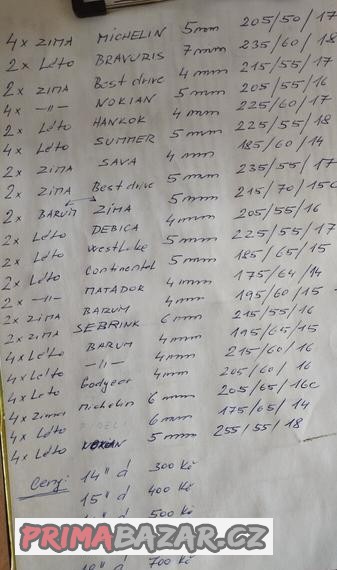 4x ZIMA MICHELIN 5mm 205/50/17
2x Léto BRAVURIS 7mm 235/60/18
2x ZIMA Best drive 4mm 215/55/17
4x -"- NOKIAN 5mm 205/55/16
2x Léto HANKOK 4mm 225/60/17
4x Léto SUMMER 5mm 225/55/18
2x ZIMA SAVA 4mm 185/60/14
2x ZIMA Best drive 5mm 235/55/17
2x BARUM ZIMA 5mm 215/70/15C
2x Léto DEBICA 4mm 205/55/16
2x Léto Westlake 5mm 225/55/17
2x Léto Continental 5mm 185/65/15
2x -"- MATADOR 4mm 175/64/14
2x ZIMA BARUM 4mm 195/60/15
2x ZIMA SEBRINK 6mm 215/55/16
4x Léto BARUM 4mm 195/65/15
4x Léto -"- 4mm 215/60/16
4x Léto Godyear 4mm 205/60/16
4x Zima Michelin 6mm 205/65/16C
4x Léto 6mm 175/65/14
4x Léto NOKIAN 5mm 255/55/18
Ceny: 14" á 300 Kč
15" á 400 Kč
500 Kč
PRIMABAZAR.CZ
700 Kč